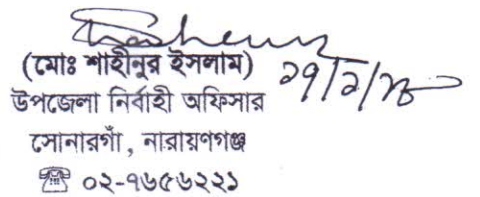 (মোঃ শাহীনুর ইসলাম)
উপজেলা নির্বাহী অফিসার
সোনারগাঁ, নারায়ণগঞ্জ
☎ ০২-৭৬৫৬২২১